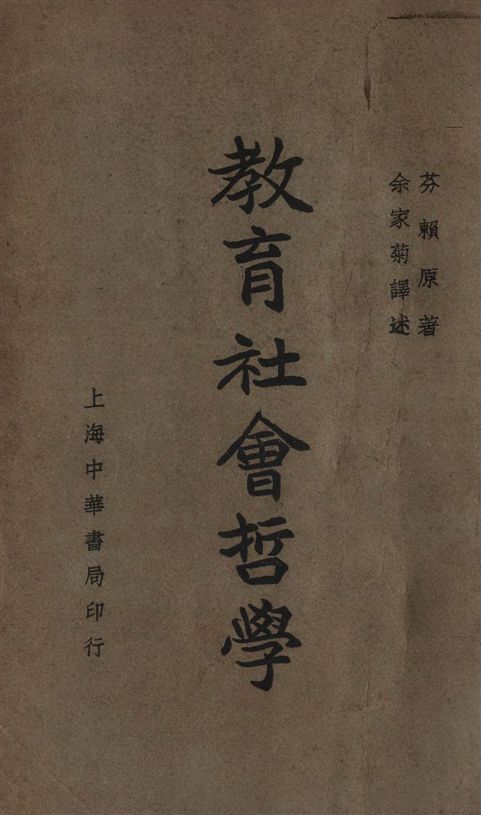 芬賴原著
余家菊譯述
教育社會哲學
上海中華書局印行